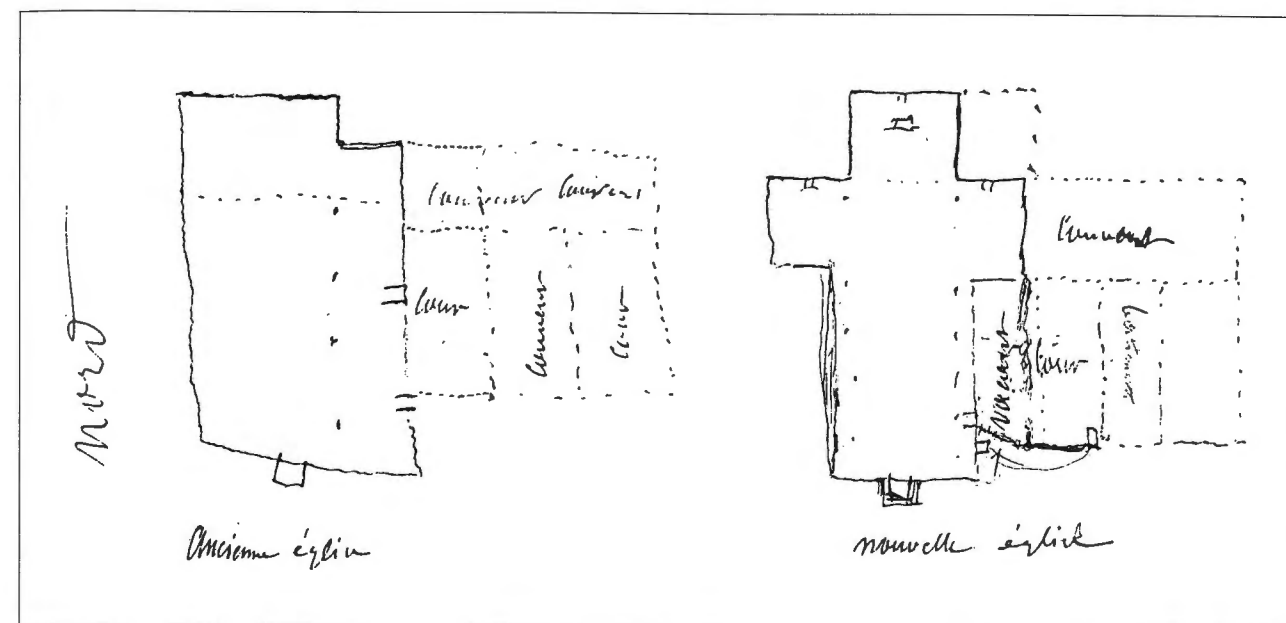 Nord
Couvent
Cour
Couvent
Cour
Ancienne église
Couvent
vacant
Cour
bâtiment
nouvelle église